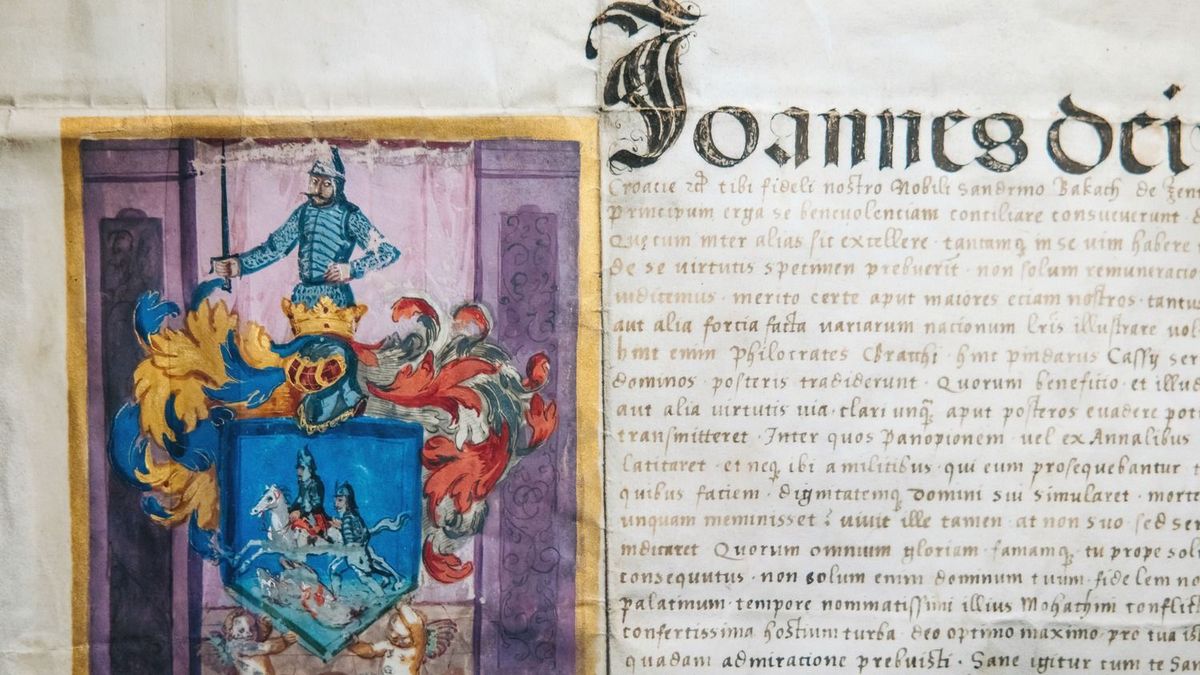 Joannes dei
Croacie &c̄ tibi fideli nostro Nobili Sandrino Bakach de
principum erga se benevolenciam conciliare consueverunt
Quęcum inter alias sic excellere · tantamq̨ in se vim habere
de se virtutis specimen prebuerit · non solum remuneracio
iudicemus · merito certe aput maiores eciam nostros · tantu
aut alia forcia facta variarum nacionum lr̄is illustrare vol
hinc enim Philocrates Gracchi · hinc pindarus Cassy ser
dominos posteris tradiderunt · Quorum beneficio et illud
aut alia virtutis via · clari unq̨ aput posteros evadere pot
transmitteret · Inter quos Panopionem vel ex Annalibus
latitaret · et neq̨ ibi a militibus · qui eum prosequebantur t
quibus faciem · dignitatemq̨ Domini sui simularet · morte
unquam meminisset? vivit ille tamen · at non suo · sed ser
indicaret Quorum omnium gloriam · famamq̨ · tu prope sol
consequutus · non solum enim dominum tuum · fidelem no
palatinum · tempore nominatissimi illius Mohachini conflict
confertissima hostium turba · deo optimo maximo · pro tua ist
quadam admiracione prebuisti · Sane igitur cum te San